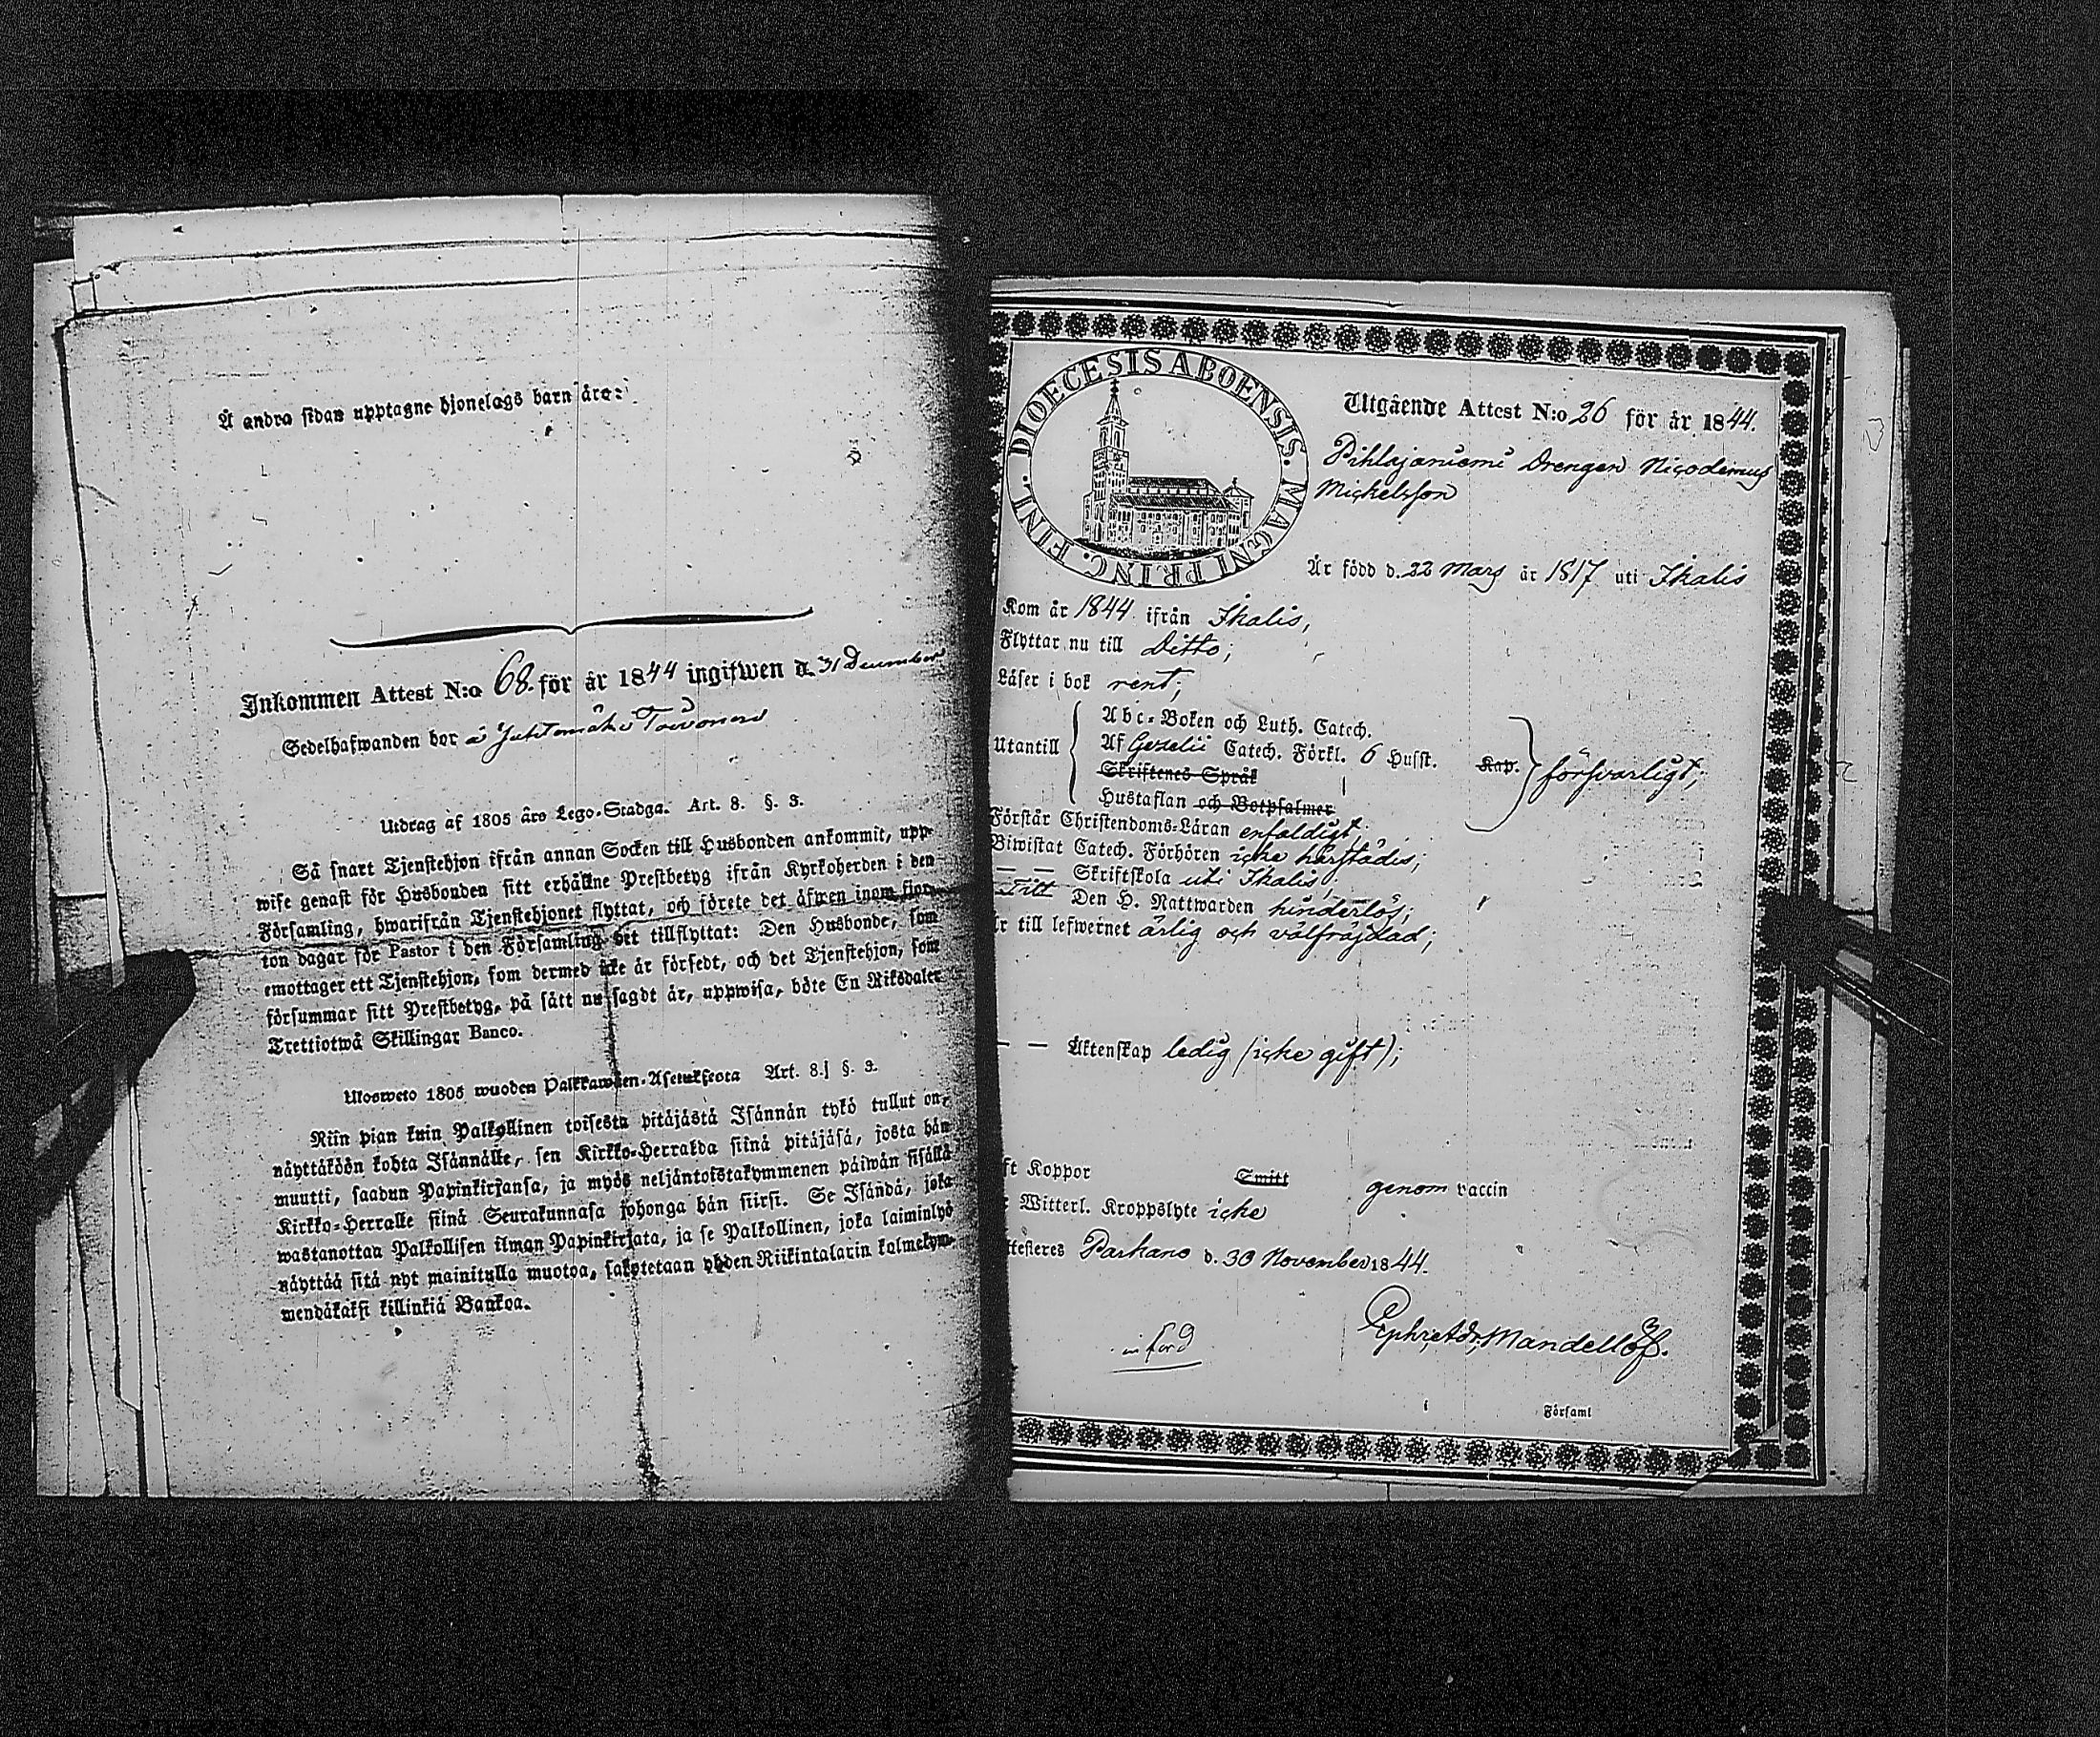 Å andra sidan upptagne hjonelags barn äro:
Inkommen Attest N:o 68. för år 1844 ingifwen d. 31 December
Sedelhafwanden bor å
Utdrag af 1805 års Lego-Stadga. Art. 8. §. 3.
Så snart Tjenstehjon ifrån annan Socken till Husbonden ankommit, upp-
wise genast för Husbonden sitt erhållne Prestbetyg ifrån Kyrkoherden i den
Församling, hwarifrån Tjenstehjonet flyttat, och förete det äfwen inom fjor-
ton dagar för Pastor i den Församling det tillflyttat: Den Husbonde, som
emottager ett Tjenstehjon, som dermed icke är försedt, och det Tjenstehjon, som
försummar sitt Prestbetyg, på sätt nu sagdt är, uppwisa, böte En Riksdaler
Trettiotwå Skillingar Banco.
Ulosweto 1805 wuoden Palkkawäen-Asetuksesta Art. 8.] §. 3.
Niin pian kuin Palkollinen toisesta pitäjästä Isännän tykö tullut on,
näyttäköön kohta Isännälle, sen Kirkko-Herralda siinä pitäjäsä, josta hän
muutti, saadun Papinkirjansa, ja myös neljäntoistakymmenen päiwän sisällä
Kirkko-Herralle siinä Seurakunnasa johonga hän siirsi. Se Isändä, joka
wastanottaa Palkollisen ilman Papinkirjata, ja se Palkollinen, joka laiminlyö
näyttää sitä nyt mainitulla muotoa, sakotetaan yhden Riikintalarin kolmekym-
mendäkaksi killinkiä Bankoa.
DIOECESIS ABOENSIS. MAGNI PRINC. FINL.
Utgående Attest N:o 26 för år 1844.
Pihlajaniemi Drengen Nicodemus
Michelsson
Är född d. 22 Mars år 1817 uti Ikalis
Kom år 1844 ifrån Ikalis,
Flyttar nu till Ditto;
Läser i bok rent;
Abc-Boken och Luth. Catech.
Utantill Af Gezelii Catech. Förkl. 6 Husst. Kap. försvarligt;
Skriftenes Språk
Hustaflan och Botpsalmer
Förstår Christendoms-Läran enfaldigt,
Biwistat Catech. Förhören icke härstädes;
— — Skriftskola uti Ikalis,
Titt Den H. Nattwarden hinderlös;
r till lefwernet ärlig och välfräjdad;
— — Äktenskap ledig (icke gift);
ft Koppor Smitt genom vaccin
Witterl. Kroppslyte icke
ttesteres Parkano d. 30 November 1844.
Mandellöf.
i Församl